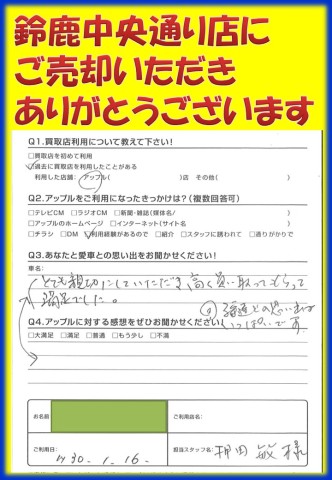 鈴鹿中央通り店に
ご売却いただき
ありがとうございます
Q1.買取店利用について教えて下さい!
□買取店を初めて利用
□過去に買取店を利用したことがある
利用した店舗: アップル( )店 その他( )
Q2.アップルをご利用になったきっかけは?(複数回答可)
□テレビCM □ラジオCM □新聞・雑誌(媒体名/ )
□アップルのホームページ □インターネット(サイト名 )
□チラシ □DM □利用経験があるので □紹介 □スタッフに誘われて □通りがかりで
Q3.あなたと愛車との思い出をお聞かせください!
車名:
とても親切にしていただき高く買い取ってもらって
満足でした。
Q4.アップルに対する感想をぜひお聞かせください!
との思い出は
いっぱいです
□大満足 □満足 □普通 □もう少し □不満
お名前
ご利用店名:
ご利用日:
H30. 1. 16.
担当スタッフ名:
押田 敏 様